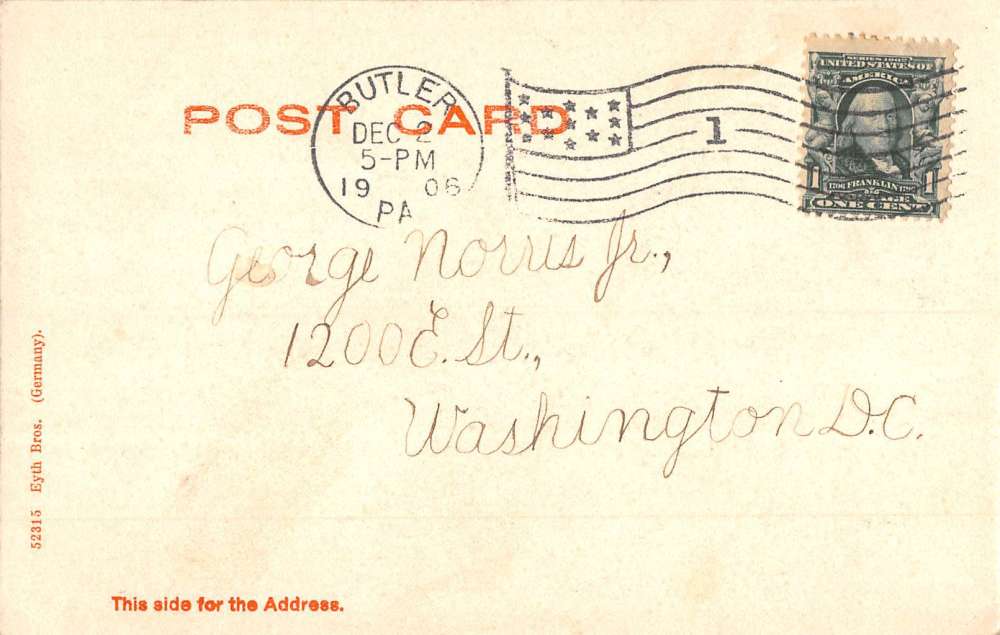 POST CARD
BUTLER
DEC 2
5-PM
19 06
PA
1
SERIES 1902
UNITED STATES OF
AMERICA
1 1
1706 FRANKLIN 1790
POSTAGE
ONE CENT
George Norris Jr.,
1200 E. St.,
Washington D.C.
52315 Eyth Bros. (Germany).
This side for the Address.